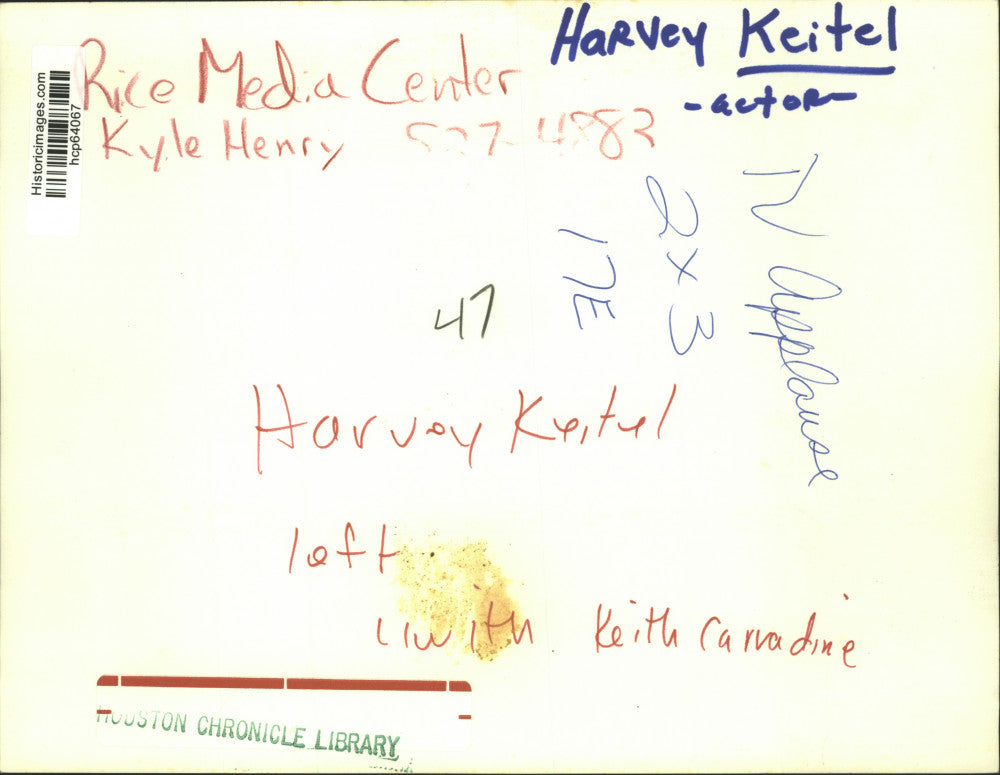 Harvey Keitel
-actor-
Rice Media Center
Kyle Henry 527-4883
Historicimages.com
hcp64067
TV Applause
2x3
17E
47
Harvey Keitel
left
with Keith Carradine
HOUSTON CHRONICLE LIBRARY